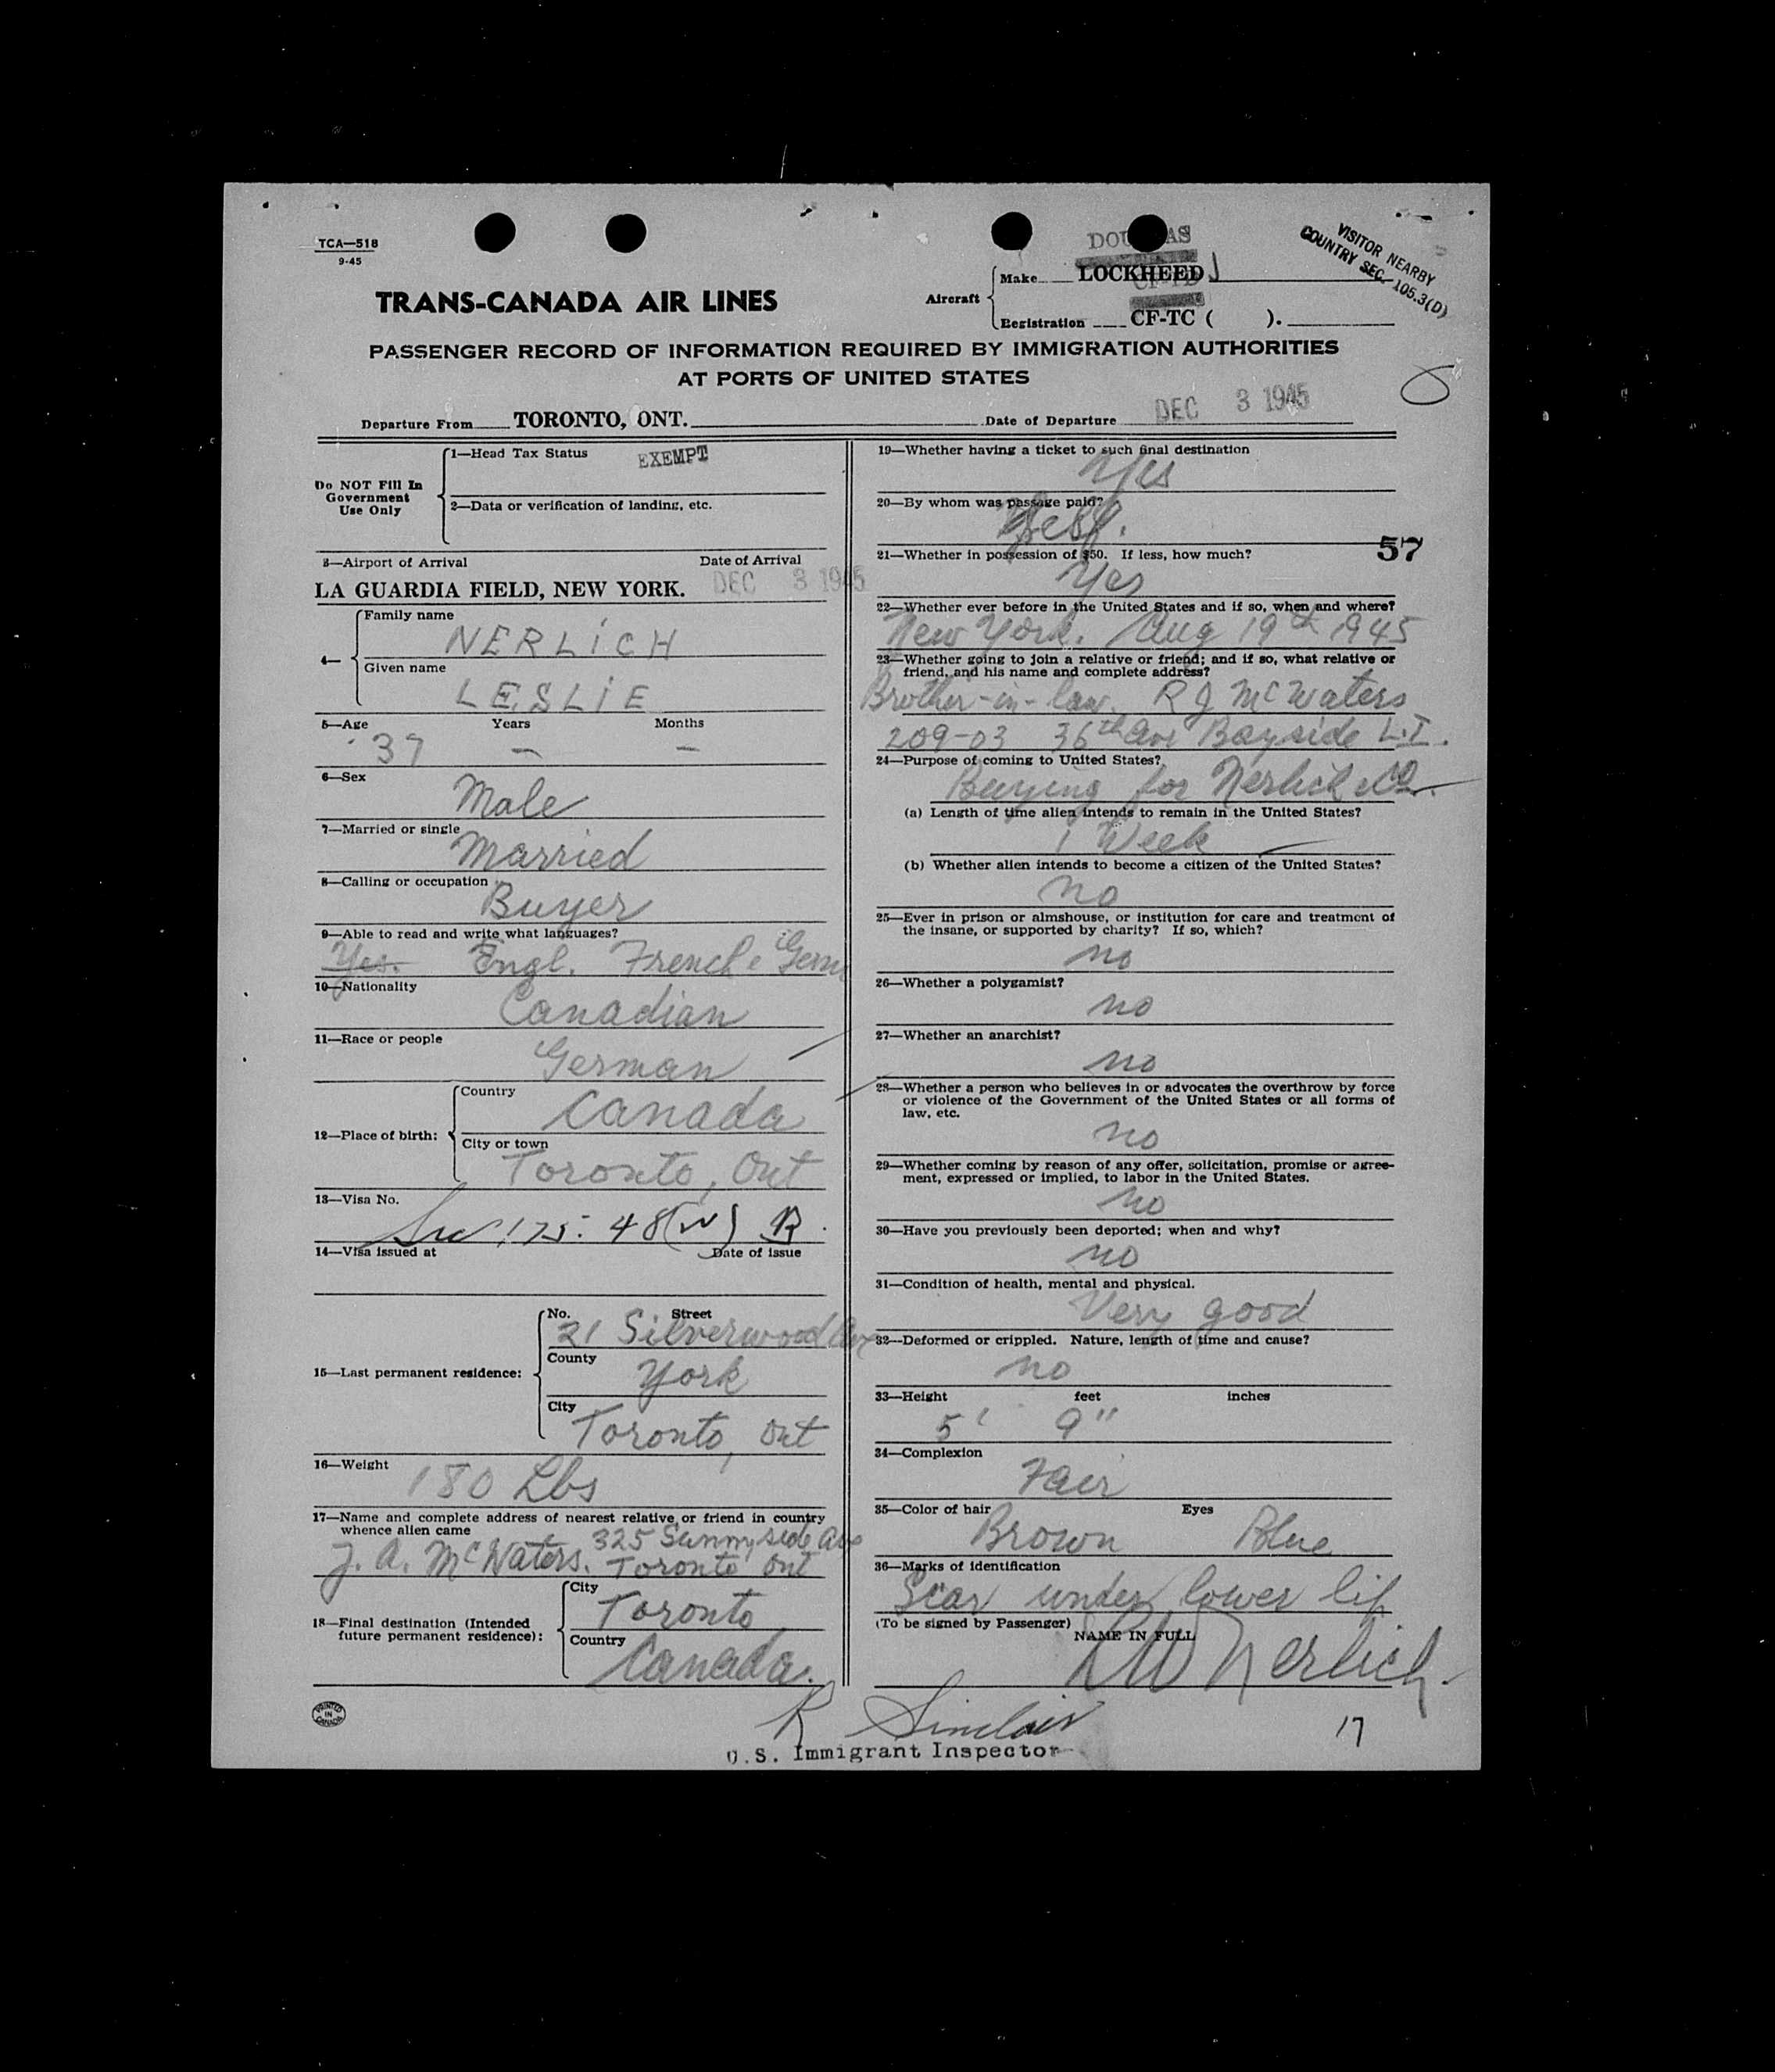 TCA—518
9-45
DOUGLAS
Make LOCKHEED
VISITOR NEARBY
COUNTRY SEC. 105.3(D)
TRANS-CANADA AIR LINES
Aircraft
Registration CF-TC ( ).
PASSENGER RECORD OF INFORMATION REQUIRED BY IMMIGRATION AUTHORITIES
AT PORTS OF UNITED STATES
Departure From TORONTO, ONT. Date of Departure DEC 3 1945
Do NOT Fill In
Government
Use Only
1—Head Tax Status EXEMPT
2—Data or verification of landing, etc.
3—Airport of Arrival Date of Arrival
LA GUARDIA FIELD, NEW YORK. DEC 3 1945
4—
Family name
NERLICH
Given name
LESLIE
5—Age Years Months
37 — —
6—Sex
Male
7—Married or single
Married
8—Calling or occupation
Buyer
9—Able to read and write what languages?
Yes. Engl. French & Germ
10—Nationality
Canadian
11—Race or people
German
12—Place of birth:
Country
Canada
City or town
Toronto, Ont
13—Visa No.
Sec 175.48(w) R.
14—Visa issued at Date of issue
15—Last permanent residence:
No. Street
21 Silverwood Ave
County
York
City
Toronto, Ont
16—Weight
180 Lbs
17—Name and complete address of nearest relative or friend in country
whence alien came
325 Sunnyside Ave
J. A. McWaters. Toronto Ont
18—Final destination (Intended
future permanent residence):
City
Toronto
Country
Canada.
19—Whether having a ticket to such final destination
Yes
20—By whom was passage paid?
Self.
21—Whether in possession of $50. If less, how much?
57
Yes
22—Whether ever before in the United States and if so, when and where?
New York. Aug 19th 1945
23—Whether going to join a relative or friend; and if so, what relative or
friend, and his name and complete address?
Brother-in-law. R J McWaters
209-03 36th Ave Bayside L.I.
24—Purpose of coming to United States?
Buying for Nerlich & Co.
(a) Length of time alien intends to remain in the United States?
1 Week
(b) Whether alien intends to become a citizen of the United States?
no
25—Ever in prison or almshouse, or institution for care and treatment of
the insane, or supported by charity? If so, which?
no
26—Whether a polygamist?
no
27—Whether an anarchist?
no
28—Whether a person who believes in or advocates the overthrow by force
or violence of the Government of the United States or all forms of
law, etc.
no
29—Whether coming by reason of any offer, solicitation, promise or agree-
ment, expressed or implied, to labor in the United States.
no
30—Have you previously been deported; when and why?
no
31—Condition of health, mental and physical.
Very good
32—Deformed or crippled. Nature, length of time and cause?
no
33—Height feet inches
5' 9"
34—Complexion
Fair
35—Color of hair Eyes
Brown Blue
36—Marks of identification
Scar under lower lip
(To be signed by Passenger)
NAME IN FULL
LW Nerlich.
PRINTED
IN
CANADA
R Sinclair
17
U.S. Immigrant Inspector